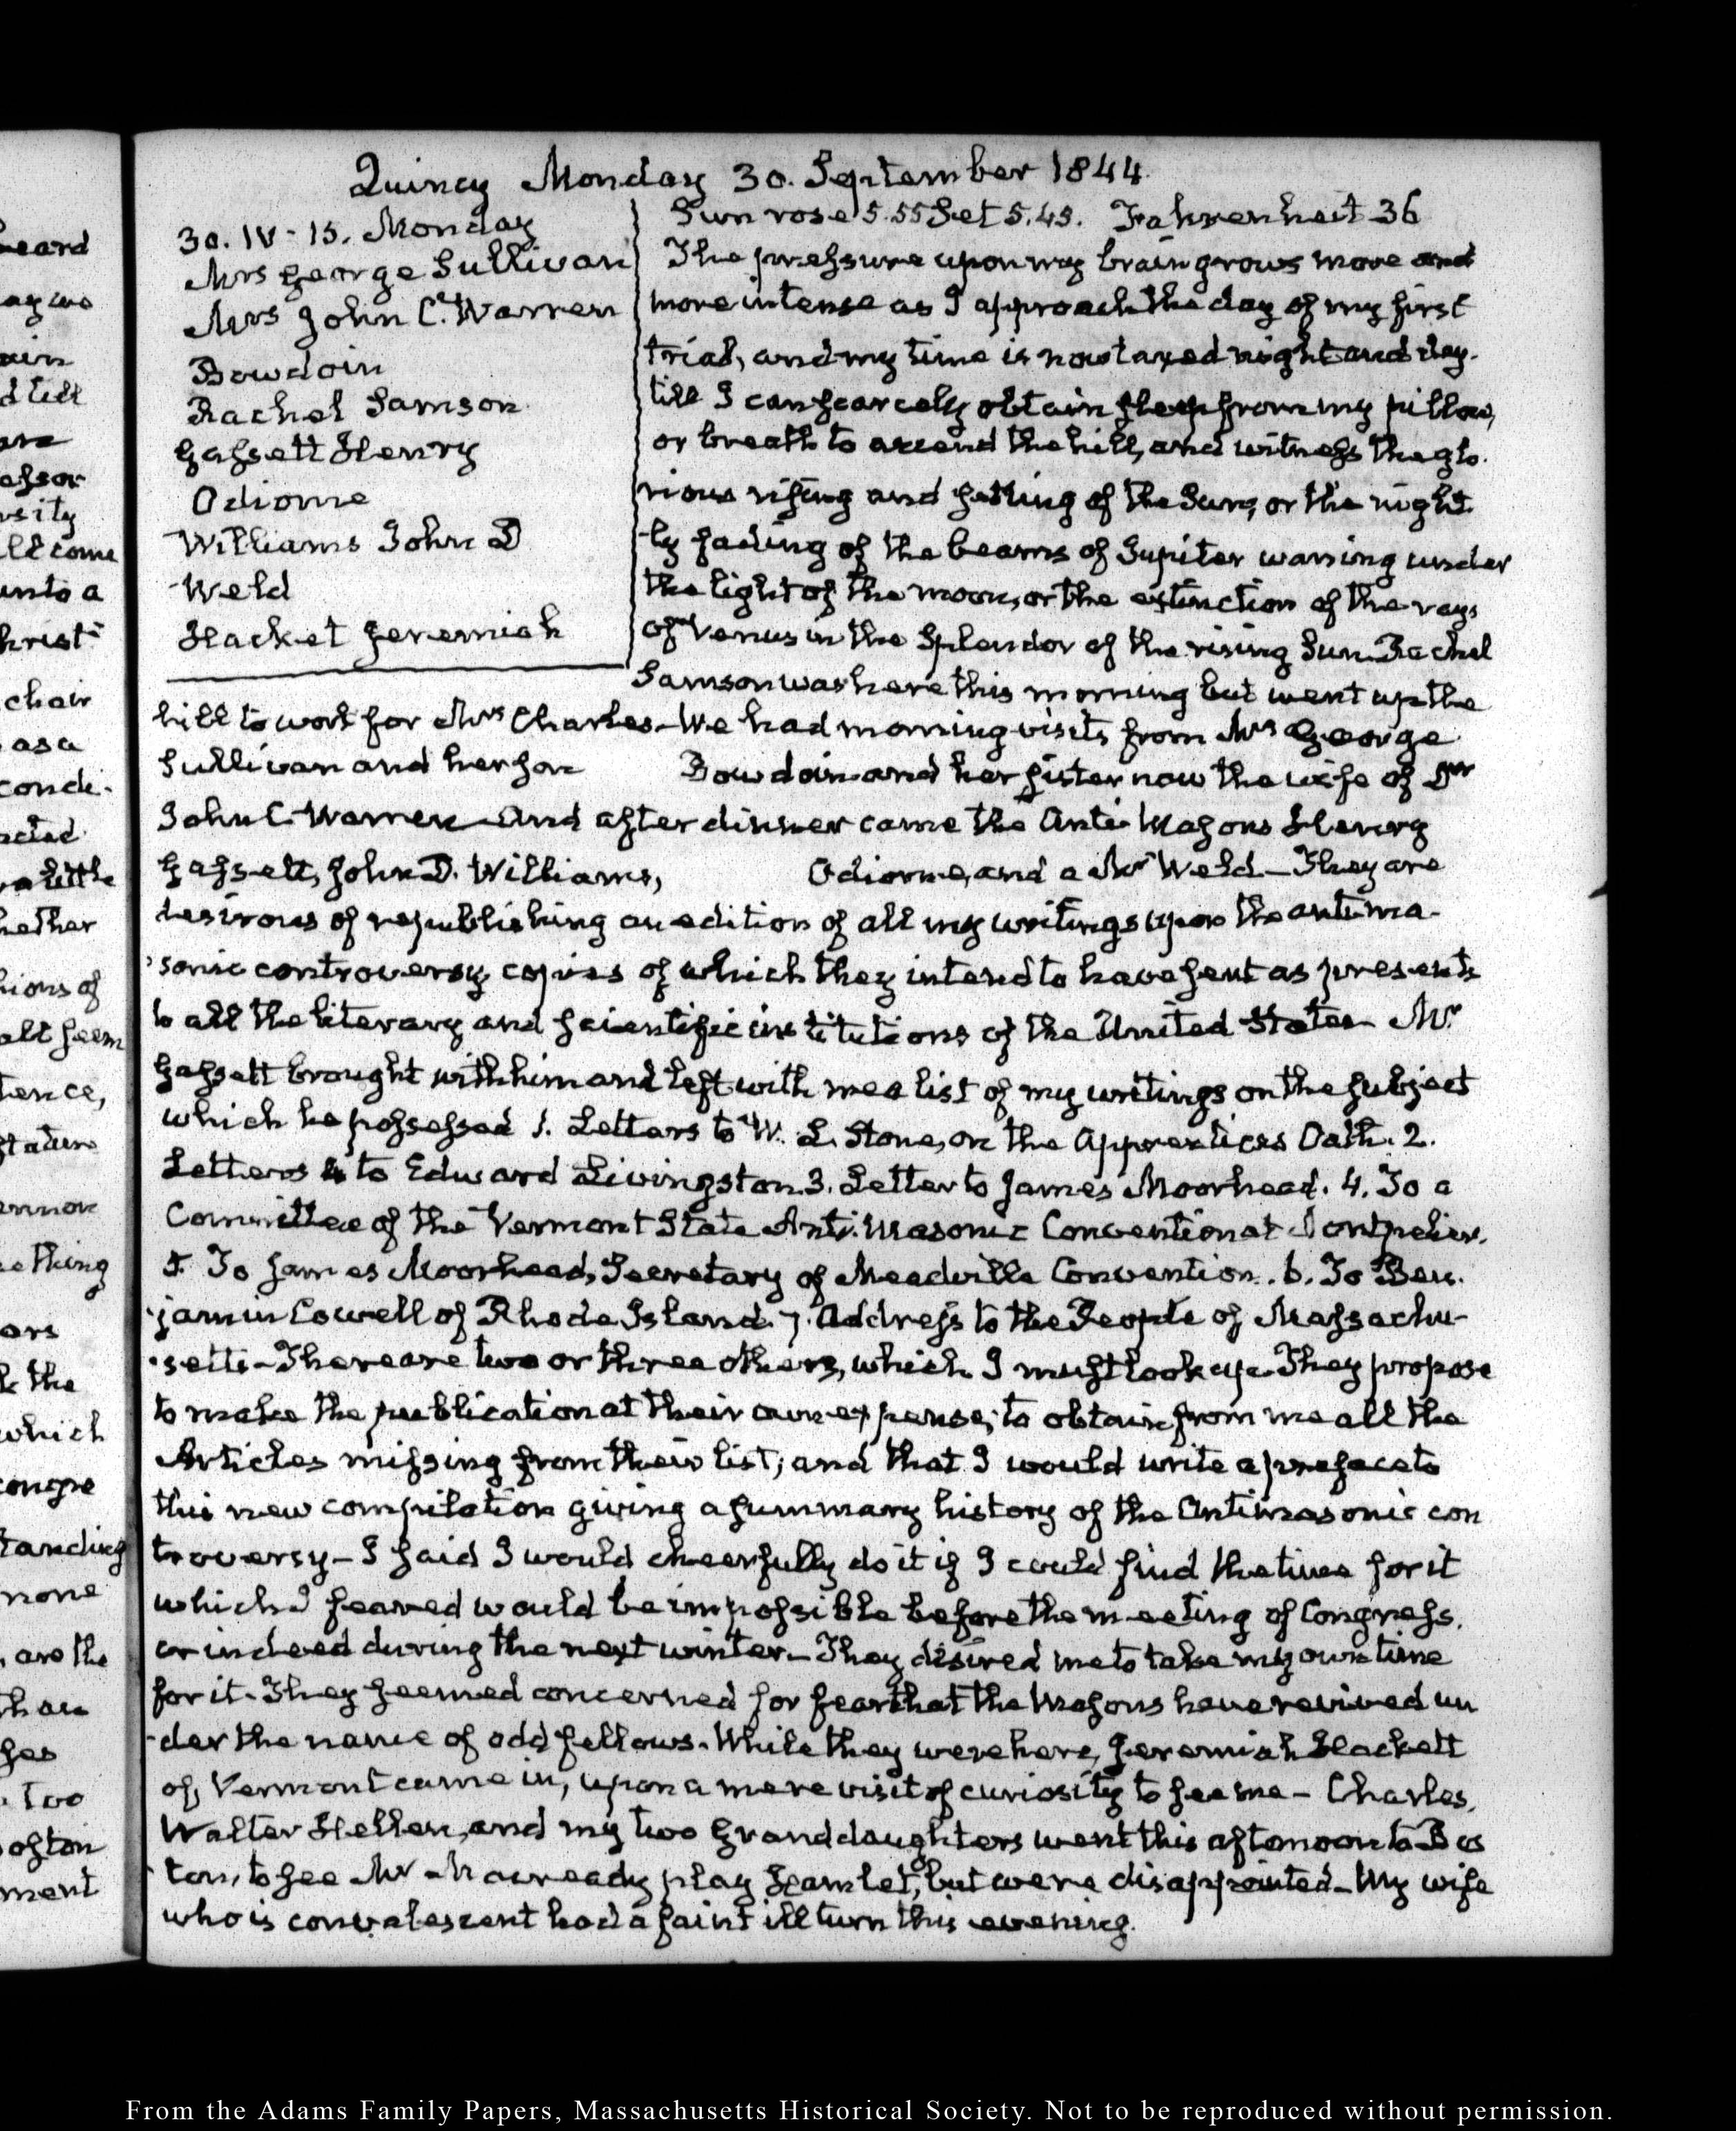 Quincy Monday 30. September 1844.
30. IV - 15. Monday
Mrs George Sullivan
Mrs John C. Warren
Bowdoin
Rachel Samson
Gassett Henry
Odiorne
Williams John D
Weld
Hacket Jeremiah
Sun rose 5.55 Set 5.45. Fahrenheit 36
The pressure upon my brain grows more and
more intense as I approach the day of my first
trial, and my time is now taxed night and day.
till I can scarcely obtain sleep from my pillow,
or breath to ascend the hill, and witness the glo-
rious rising and setting of the Sun, or the night-
-ly fading of the beams of Jupiter waning under
the light of the moon, or the extinction of the rays
of Venus in the Splendor of the rising Sun. Rachel
Samson was here this morning but went up the
hill to work for Mrs Charles - We had morning visits from Mrs George
Sullivan and her son Bowdoin and her sister now the wife of Dr
John C. Warren - And after dinner came the Anti-Masons Henry
Gassett, John D. Williams, Odiorne, and a Mr Weld - They are
desirous of republishing an edition of all my writings upon the antima-
-sonic controversy copies of which they intend to have sent as presents
to all the literary and scientific institutions of the United States - Mr
Gassett brought with him and left with me a list of my writings on the subject
which he possessed 1. Letters to W. L. Stone, on the Apprentices Oath. 2.
Letters to Edward Livingston. 3. Letter to James Moorhead. 4. To a
Committee of the Vermont State Anti-Masonic Convention at Montpelier.
5. To James Moorhead, Secretary of Meadville Convention. 6. To Ben-
-jamin Cowell of Rhode Island. 7. Address to the People of Massachu-
-setts - There are two or three others, which I must look up - They propose
to make the publication at their own expense; to obtain from me all the
Articles missing from their list; and that I would write a preface to
this new compilation giving a summary history of the Antimasonic con
troversy - I said I would cheerfully do it if I could find the time for it
which I feared would be impossible before the meeting of Congress,
or indeed during the next winter - They desired me to take my own time
for it - They seemed concerned for fear that the Masons have revived un
-der the name of odd fellows - While they were here, Jeremiah Hackett
of Vermont came in, upon a mere visit of curiosity to see me - Charles,
Walter Hellen, and my two Granddaughters went this afternoon to Bos
ton, to see Mr Macready play Hamlet, but were disappointed - My wife
who is convalescent had a faint ill turn this evening.
From the Adams Family Papers, Massachusetts Historical Society. Not to be reproduced without permission.